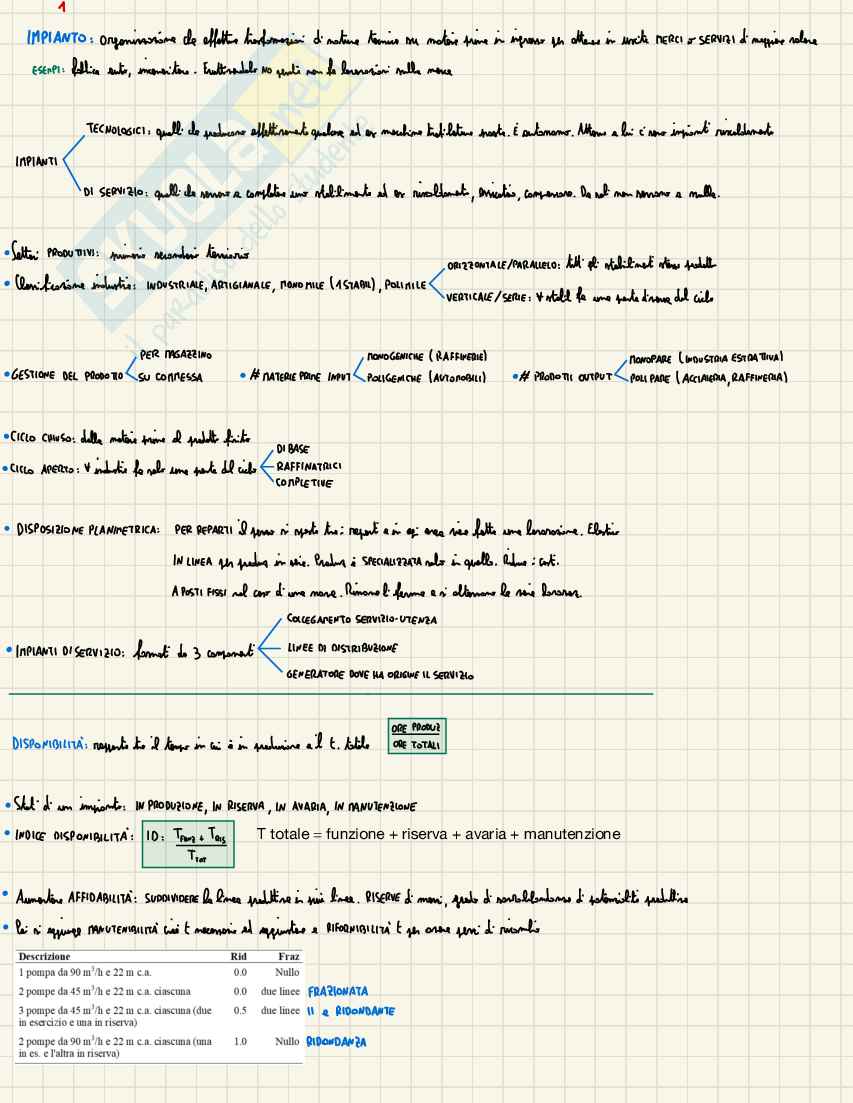 1
IMPIANTO: organizzazione che effettua trasformazioni di natura tecnica su materie prime in ingresso per ottenere in uscita MERCI o SERVIZI di maggior valore
ESEMPI: fabbrica auto, inceneritore. NO non fa lavorazioni sulla merce
TECNOLOGICI: quelli che producono effettivamente qualcosa ad es macchina trafilatura pasta. È autonomo. Attorno a lui c'sono impianti riscaldamento
IMPIANTI
DI SERVIZIO: quelli che servono a completare uno stabilimento ad es riscaldamento, compressore. Da soli non servono a nulla.
• Settori PRODUTTIVI: primario secondario terziario
ORIZZONTALE/PARALLELO: tutti gli stabilimenti stesso prodotto
• Classificazione industria: INDUSTRIALE, ARTIGIANALE, MONOMILE (1 STABIL), POLIMILE
VERTICALE/SERIE: ∀ stabil fa una parte diversa del ciclo
PER MAGAZZINO
MONOGENICHE (RAFFINERIE)
MONOPARE (INDUSTRIA ESTRATTIVA)
• GESTIONE DEL PRODOTTO
SU COMMESSA
• # MATERIE PRIME INPUT
POLIGENICHE (AUTOMOBILI)
• # PRODOTTI OUTPUT
POLIPARE (ACCIAIERIA, RAFFINERIA)
• CICLO CHIUSO: dalla materia prima al prodotto finito
DI BASE
• CICLO APERTO: ∀ industria fa solo una parte del ciclo
RAFFINATRICI
COMPLETIVE
• DISPOSIZIONE PLANIMETRICA: PER REPARTI il pezzo si sposta tra i reparti e in ogni area viene fatta una lavorazione. Elastico
IN LINEA per produrre in serie. Produz è SPECIALIZZATA solo in quello. Riduce i costi.
A POSTI FISSI nel caso di una nave. Rimane lì ferma e si alternano le varie lavoraz.
COLLEGAMENTO SERVIZIO-UTENZA
• IMPIANTI DI SERVIZIO: formati da 3 componenti
LINEE DI DISTRIBUZIONE
GENERATORE DOVE HA ORIGINE IL SERVIZIO
DISPONIBILITÀ: rapporto tra il tempo in cui è in produzione e il t. totale
ORE PRODUZ
ORE TOTALI
• Stati di un impianto: IN PRODUZIONE, IN RISERVA, IN AVARIA, IN MANUTENZIONE
• INDICE DISPONIBILITÀ: ID: T FUNZ + T RIS
T TOT
T totale = funzione + riserva + avaria + manutenzione
• Aumentare AFFIDABILITÀ: SUDDIVIDERE la linea produttiva in più linee. RISERVE di mezzi, grado di sovrabbondanza di potenzialità produttiva
• Poi si aggiunge MANUTENIBILITÀ cioè t necessario ad aggiustare e RIFORNIBILITÀ t per avere pezzi di ricambio
Descrizione Rid Fraz
1 pompa da 90 m³/h e 22 m c.a. 0.0 Nullo
2 pompe da 45 m³/h e 22 m c.a. ciascuna 0.0 due linee FRAZIONATA
3 pompe da 45 m³/h e 22 m c.a. ciascuna (due 0.5 due linee II e RIDONDANTE
in esercizio e una in riserva)
2 pompe da 90 m³/h e 22 m c.a. ciascuna (una 1.0 Nullo RIDONDANZA
in es. e l'altra in riserva)
SKUOLA.net
il paradiso dello studente